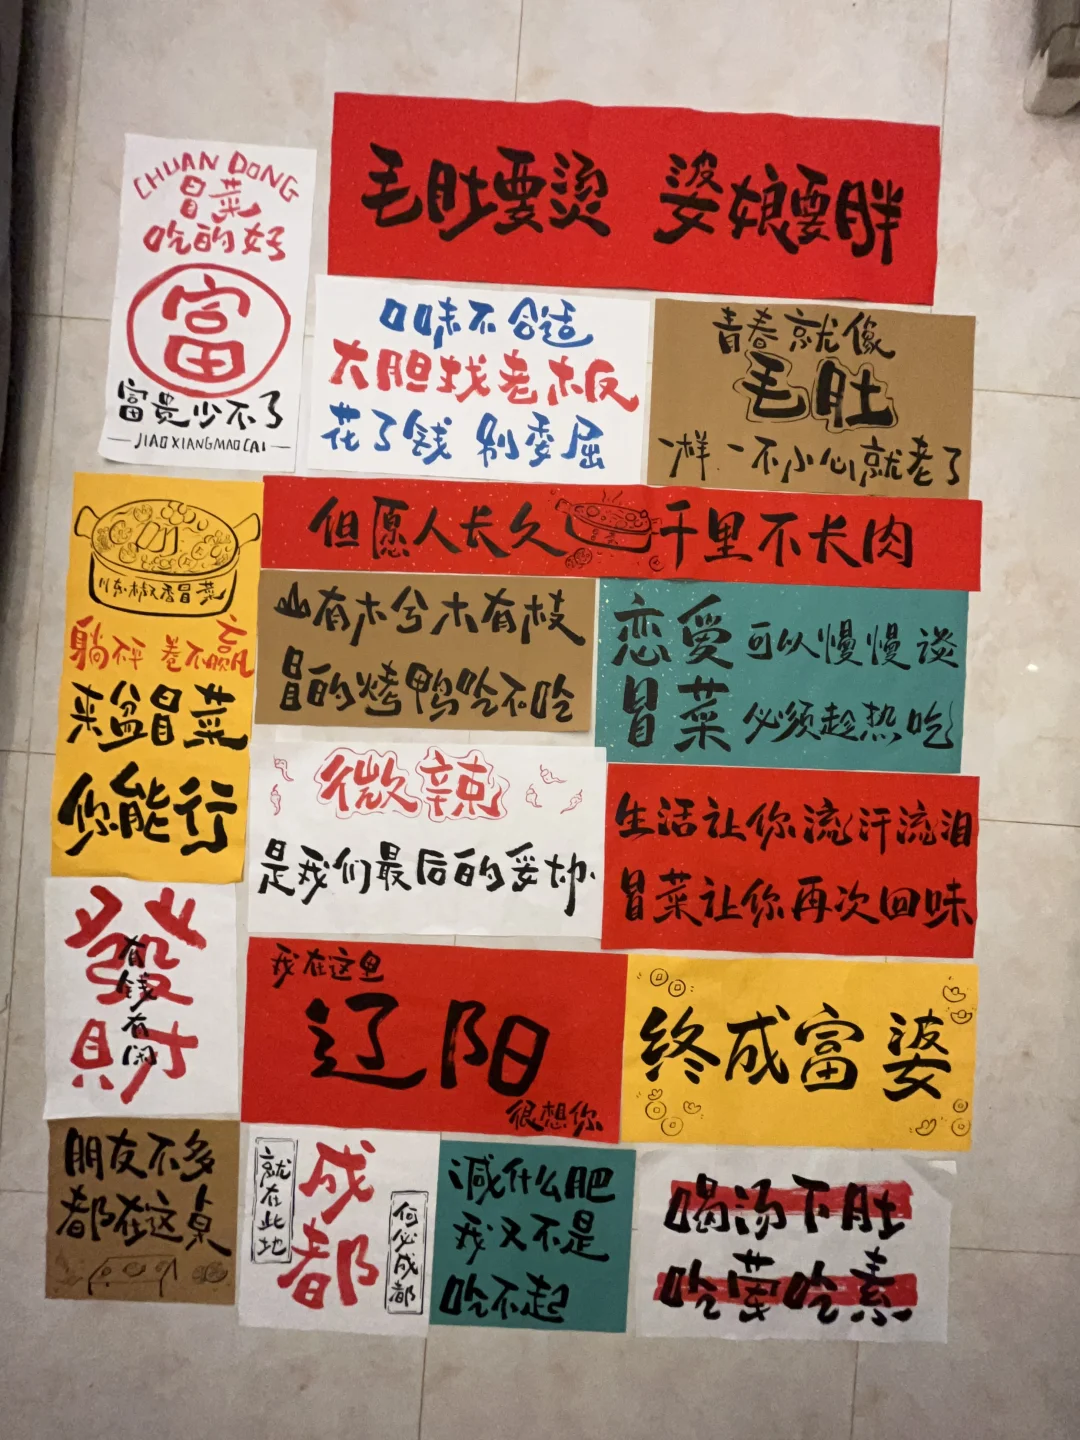 CHUAN DONG
冒菜
吃的好
富
富贵少不了
JIAO XIANG MAO CAI
毛肚要烫 婆娘要胖
口味不合适
大胆找老板
花了钱 别委屈
青春就像
毛肚
一样 一不小心就老了
川东椒香冒菜
躺不平 卷不赢
来盆冒菜
你能行
但愿人长久 千里不长肉
山有木兮木有枝
冒的烤鸭吃不吃
恋爱可以慢慢谈
冒菜必须趁热吃
微辣
是我们最后的妥协
生活让你流汗流泪
冒菜让你再次回味
發財
有钱有闲
我在这里
辽阳
很想你
终成富婆
朋友不多
都在这桌
就在此地
成都
何必成都
减什么肥
我又不是
吃不起
喝汤下肚
吃荤吃素